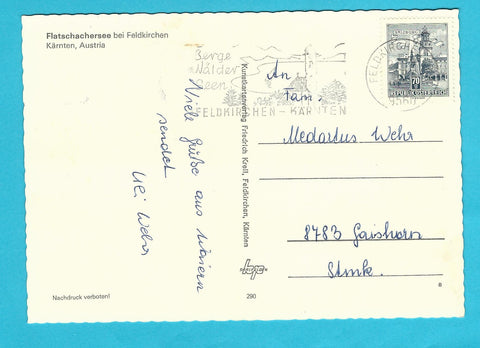 Flatschachersee bei Feldkirchen
Kärnten, Austria
Berge
Wälder
Seen
FELDKIRCHEN - KÄRNTEN
FELDKIRCHEN
9560
70
REPUBLIK ÖSTERREICH
An
Fam.
Medardus Wehr
8783 Gaishorn
Stmk.
Viele Grüße aus
sendet
Uli Wehr
Kunstkartenverlag Friedrich Krell, Feldkirchen, Kärnten
Nachdruck verboten!
290
8